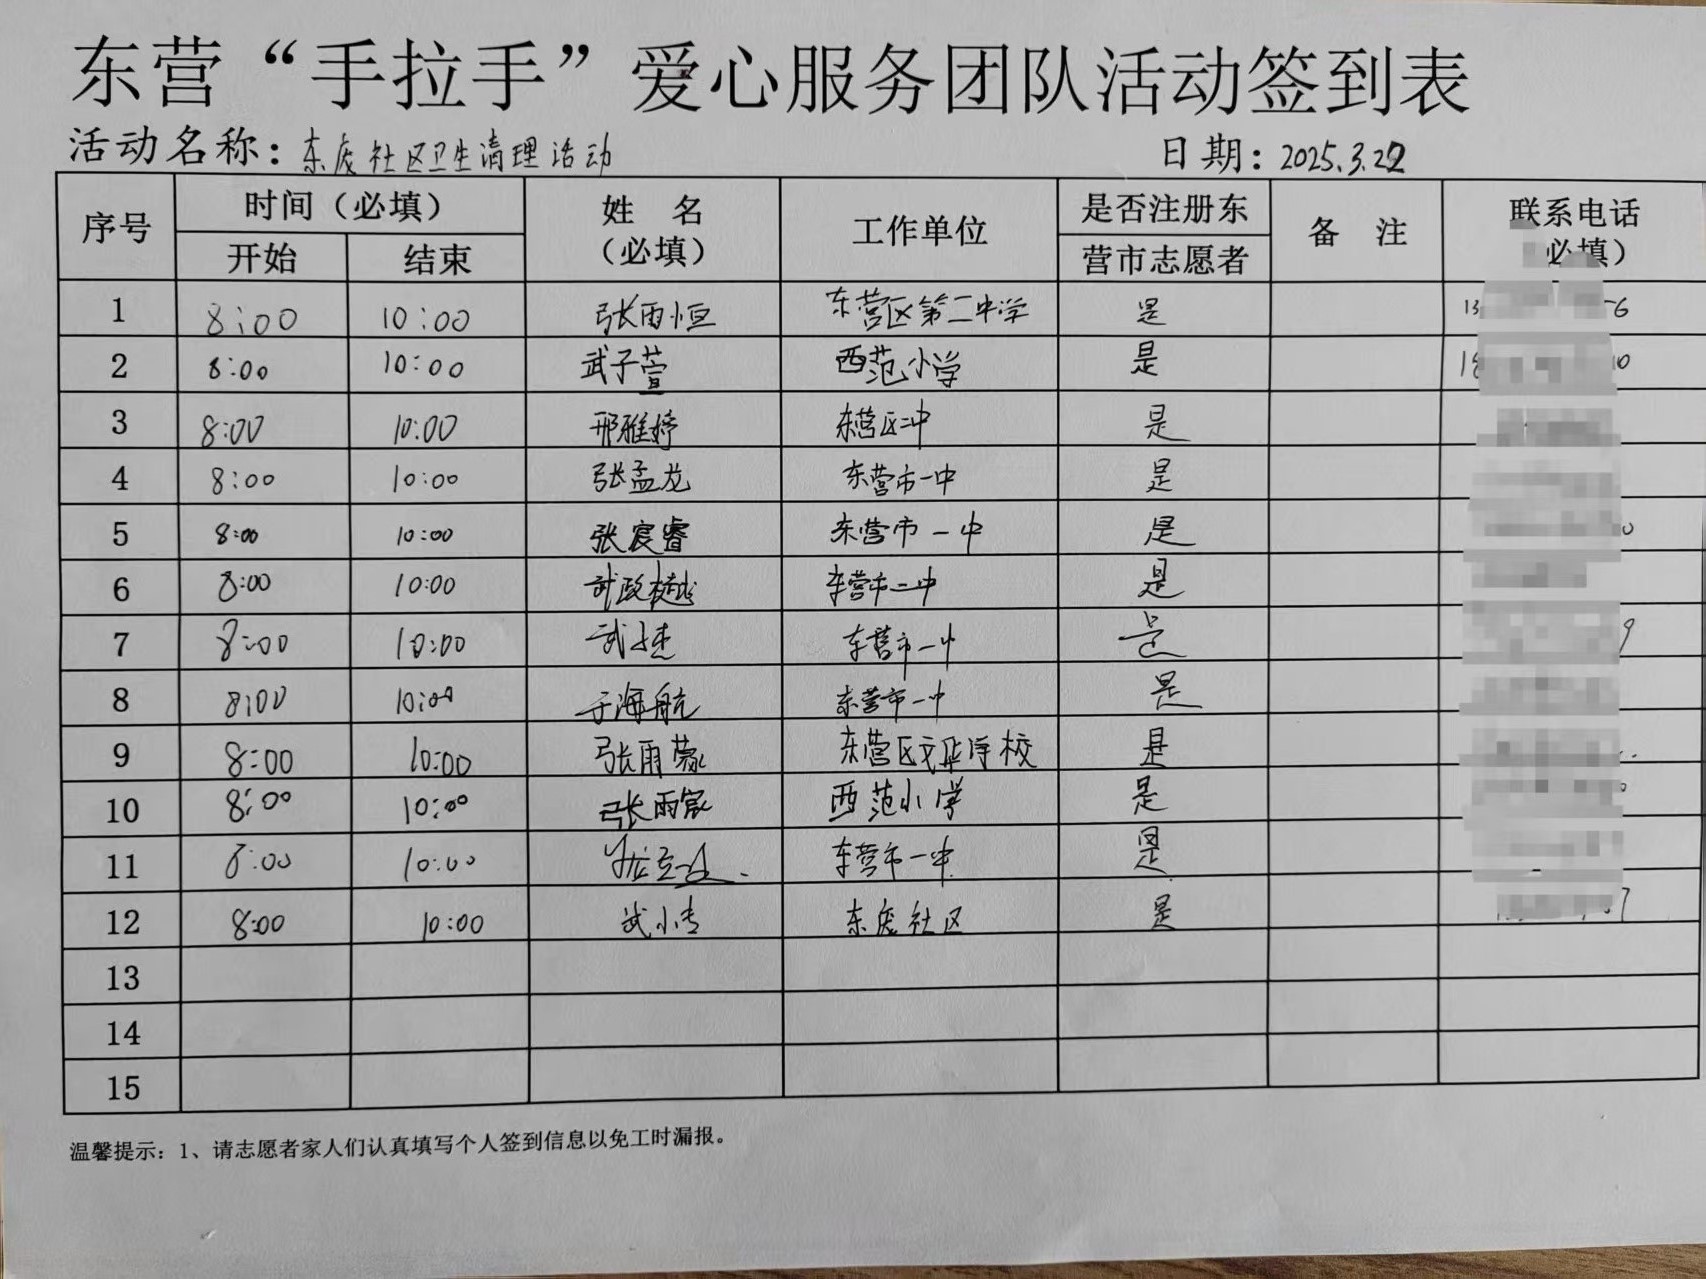 东营“手拉手”爱心服务团队活动签到表
活动名称：东庞社区卫生清理活动 日期：2025.3.22
序号 时间（必填） 开始 结束 姓 名（必填） 工作单位 是否注册东营市志愿者 备 注 联系电话（必填）
1 8:00 10:00 张雨恒 东营区第二中学 是 13 6
2 8:00 10:00 武子萱 西范小学 是 18 10
3 8:00 10:00 邢雅婷 东营区二中 是
4 8:00 10:00 张孟龙 东营市一中 是
5 8:00 10:00 张宸睿 东营市一中 是 0
6 8:00 10:00 武政樾 东营市二中 是
7 8:00 10:00 武 东营市一中 是 9
8 8:00 10:00 于海航 东营市一中 是
9 8:00 10:00 张雨蒙 东营区文华学校 是
10 8:00 10:00 张雨家 西范小学 是
11 8:00 10:00 东营市一中 是
12 8:00 10:00 武小专 东庞社区 是 7
13
14
15
温馨提示：1、请志愿者家人们认真填写个人签到信息以免工时漏报。